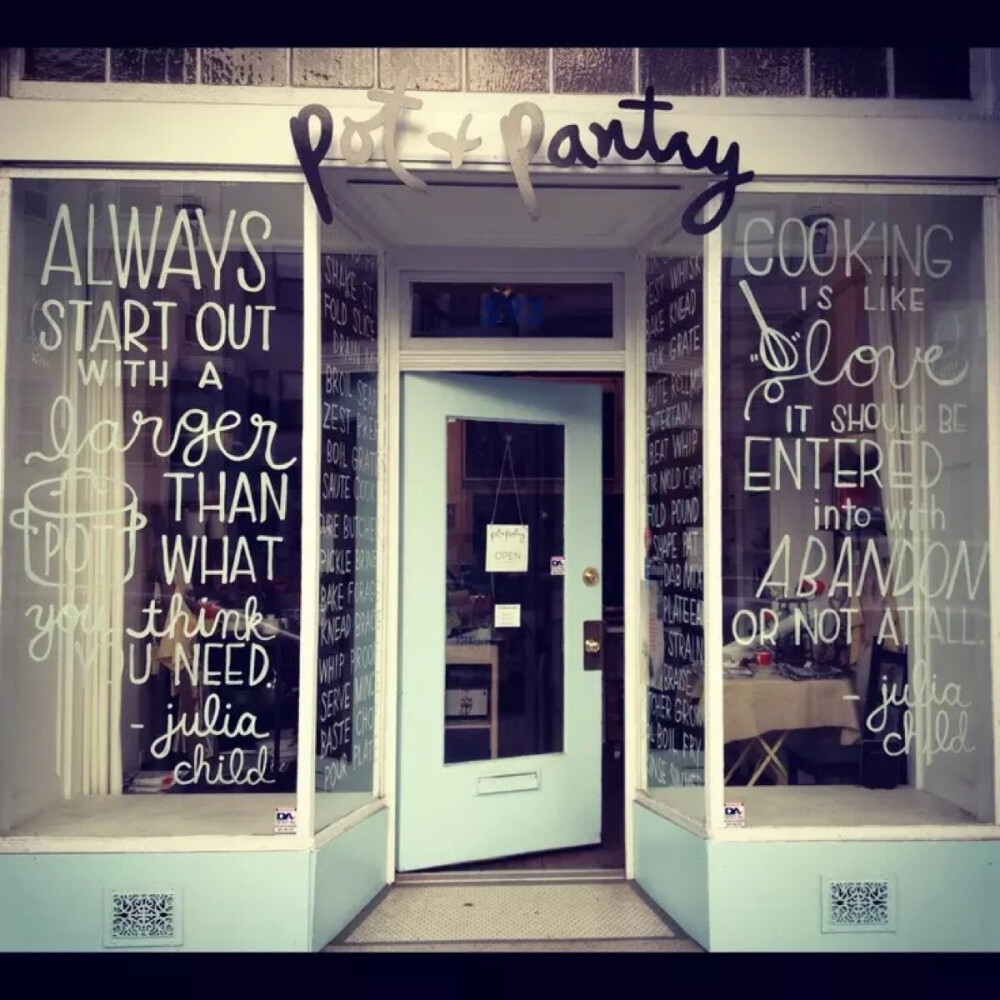 pot + pantry
ALWAYS
START OUT
WITH A
larger
POT
THAN
WHAT
you think
YOU NEED.
- julia
child
FOLD SLICE
BROIL SEAR
ZEST PREP
BOIL GRATE
SAUTE COOK
BUTCHER
PICKLE BRINE
BAKE
KNEAD
WHIP
SERVE
BASTE
POUR PLATE
pot + pantry
OPEN
ZEST WHISK
BAKE KNEAD
GRATE
ENTERTAIN
BEAT WHIP
MOLD CHOP
FOLD POUND
SHAPE PAT
DAB MIX
PLATE
STRAIN
BRAISE
BOIL FRY
COOKING
IS LIKE
love
IT SHOULD BE
ENTERED
into with
ABANDON
OR NOT AT ALL.
- julia
child
DA
DA